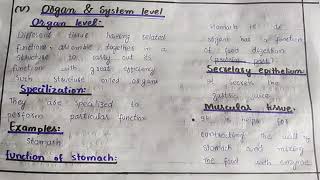 (V) Organ & System level
Organ level:
Different tissue having related
functions, assemble togethers in a
structure to carry out its
function with great efficiency
Such structure called organs
Specilization:
They are specilized to
perform particular function
Examples:
Stomach
function of stomach:
Stomach is
organ has a function
of food digestion
(protein part)
Secretary epithelium:
It secrets the
gastric juice
Muscular tissue:
It is helps for
contracting the wall of
stomach and mixing
the food with enzyme